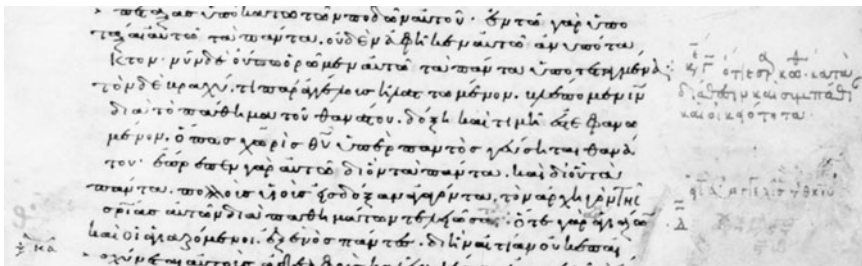 πεταξας ὑποκάτω τῶν ποδῶν αὐτοῦ· ἐν τῶ γὰρ ὑπο
ταξαι αὐτῶ τὰ πάντα. οὐδὲν ἀφῆκεν αὐτῶ ἀνυπότα
κτον· νῦν δὲ οὔπω ὁρῶμεν αὐτῶ τὰ πάντα ὑποτεταγμένα·
τὸν δὲ βραχύ τι παραγγέλοις ἠλαττωμένον. βλέπομεν ι̅ν̅
διὰ τὸ πάθημα τοῦ θανάτου. δόξη καὶ τιμῆ ἐστεφανω
μένον. ὅπως χωρὶς θ̅υ̅ ὑπὲρ παντὸς γεύσηται θανά
του· ἔπρεπεν γὰρ αὐτῶ δι' ὃν τὰ πάντα. καὶ δι' οὗ τὰ
πάντα. πολλοὺς υἱοὺς εἰς δόξαν ἀγαγόντα. τὸν ἀρχηγὸν τῆς
σ̅ρ̅ιας αὐτῶν διὰ παθημάτων τελειῶσαι. ὅ τε γὰρ ἁγιάζων
καὶ οἱ ἁγιαζόμενοι. ἐξ ἑνὸς πάντες. δι' ἣν αἰτίαν οὐκ ἐπαι
σχύνεται αὐτοὺς
κατὰ
διάθεσιν καὶ συμπάθει
καὶ οἰκειότητα